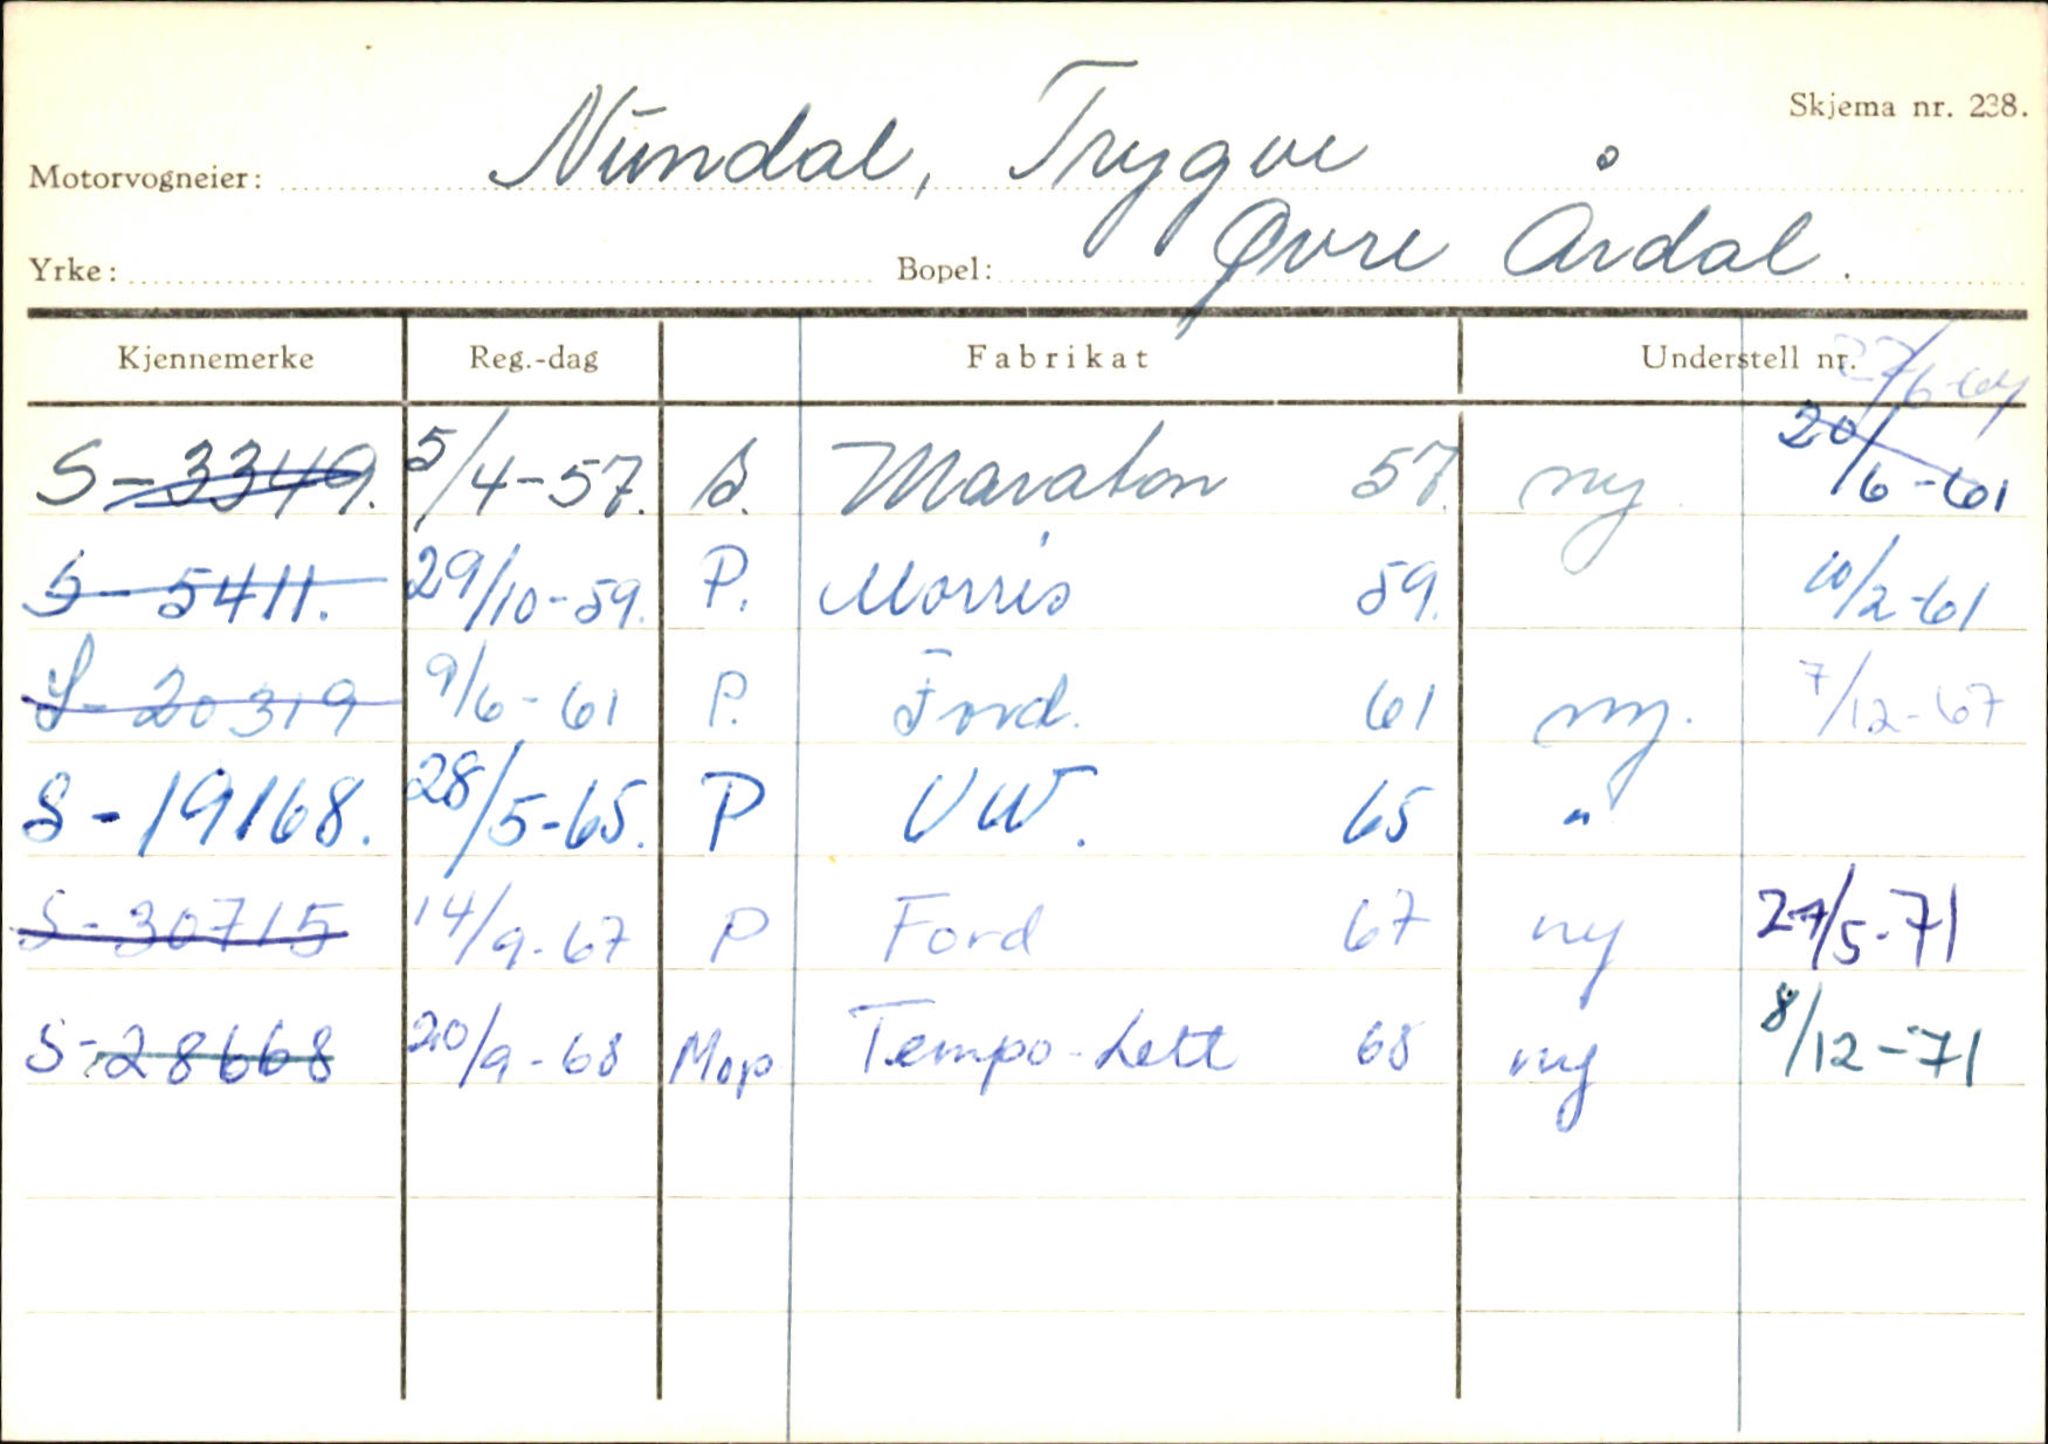 Skjema nr. 238.
Motorvogneier: Nundal, Trygve
Yrke: Bopel: Øvre Årdal.
Kjennemerke Reg.-dag Fabrikat Understell nr. 27/6-64
S-3349. 5/4-57. S. Maraton 57. ny. 20/6-61
S-5411. 29/10-59. P. Morris 59. 10/2-61
S-20319 9/6-61 P. Ford. 61 ny. 7/12-67
S-19168. 28/5-65. P VW. 65 "
S-30715 14/9-67 P Ford 67 ny 27/5-71
S-28668 20/9-68 Mop Tempo-Lett 68 ny 8/12-71